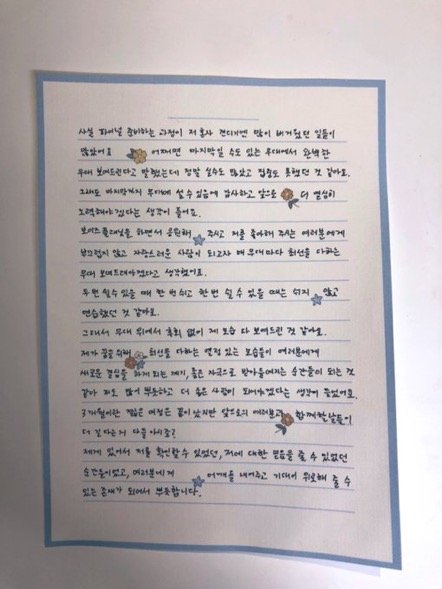 사실 파이널 준비하는 과정이 저 혼자 견디기엔 많이 버거웠던 일들이
많았어요 어쩌면 마지막일 수도 있는 무대에서 완벽한
무대 보여드린다고 말했는데 정말 실수도 많았고 집중도 못했던 것 같아요.
그래도 마지막까지 무대에 설 수 있음에 감사하고 앞으로 더 열심히
노력해야겠다는 생각이 들어요.
보이즈플래닛을 하면서 응원해 주시고 저를 좋아해 주시는 여러분에게
부끄럽지 않고 자랑스러운 사람이 되고자 매 무대마다 최선을 다하는
무대 보여드려야겠다고 생각했어요.
두 번 쉴 수 있을 때 한 번 쉬고 한 번 쉴 수 있을 때는 쉬지 않고
연습했던 것 같아요.
그래서 무대 위에서 후회 없이 제 모습 다 보여드린 것 같아요.
제가 꿈을 위해 최선을 다하는 열정 있는 모습들이 여러분에게
새로운 결심을 하게 되는 계기, 좋은 자극으로 받아들여지는 순간들이 되는 것
같아 저도 많이 뿌듯하고 더 좋은 사람이 되어야겠다는 생각이 들었어요.
3개월이란 짧은 여정은 끝이 났지만 앞으로의 여러분과 함께할 날들이
더 길 다는 거 다들 아시죠?
제게 있어서 저를 확인할 수 있었던, 저에 대한 믿음을 줄 수 있었던
순간들이었고, 여러분에게 어깨를 내어주고 기대어 위로해 줄 수
있는 존재가 되어서 뿌듯합니다.